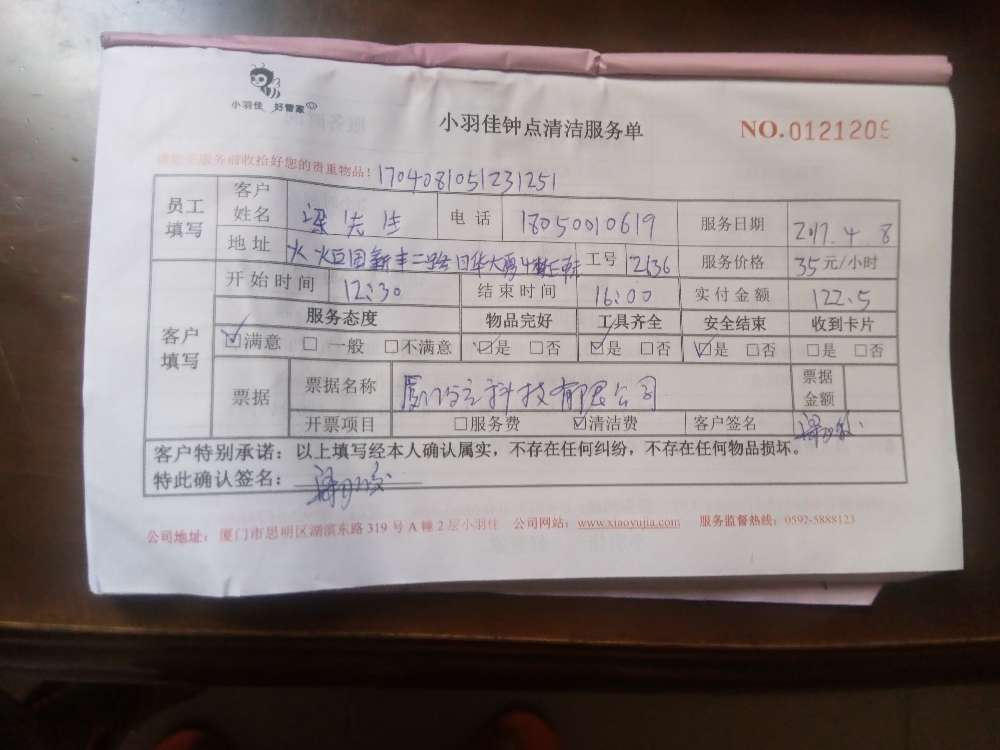 小羽佳 好管家
小羽佳钟点清洁服务单
NO.0121209
服务前收拾好您的贵重物品！1704081051231251
员工填写 客户姓名 梁先生 电话 18050010619 服务日期 2017.4.8
地址 火炬园新丰二路日华大厦 工号 2636 服务价格 35元/小时
客户填写 开始时间 12:30 结束时间 16:00 实付金额 122.5
服务态度 物品完好 工具齐全 安全结束 收到卡片
☑满意 □一般 □不满意 ☑是 □否 ☑是 □否 ☑是 □否 □是 □否
票据 票据名称 科技有限公司 票据金额
开票项目 □服务费 ☑清洁费 客户签名
客户特别承诺：以上填写经本人确认属实，不存在任何纠纷，不存在任何物品损坏。
特此确认签名：
公司地址：厦门市思明区湖滨东路319号A幢2层小羽佳 公司网站：www.xiaoyujia.com 服务监督热线：0592-5888123